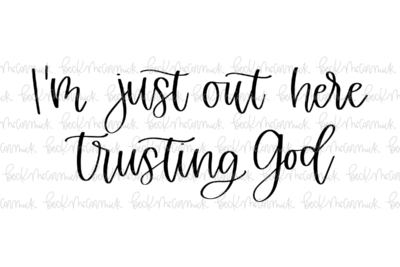 I'm just out here
trusting God